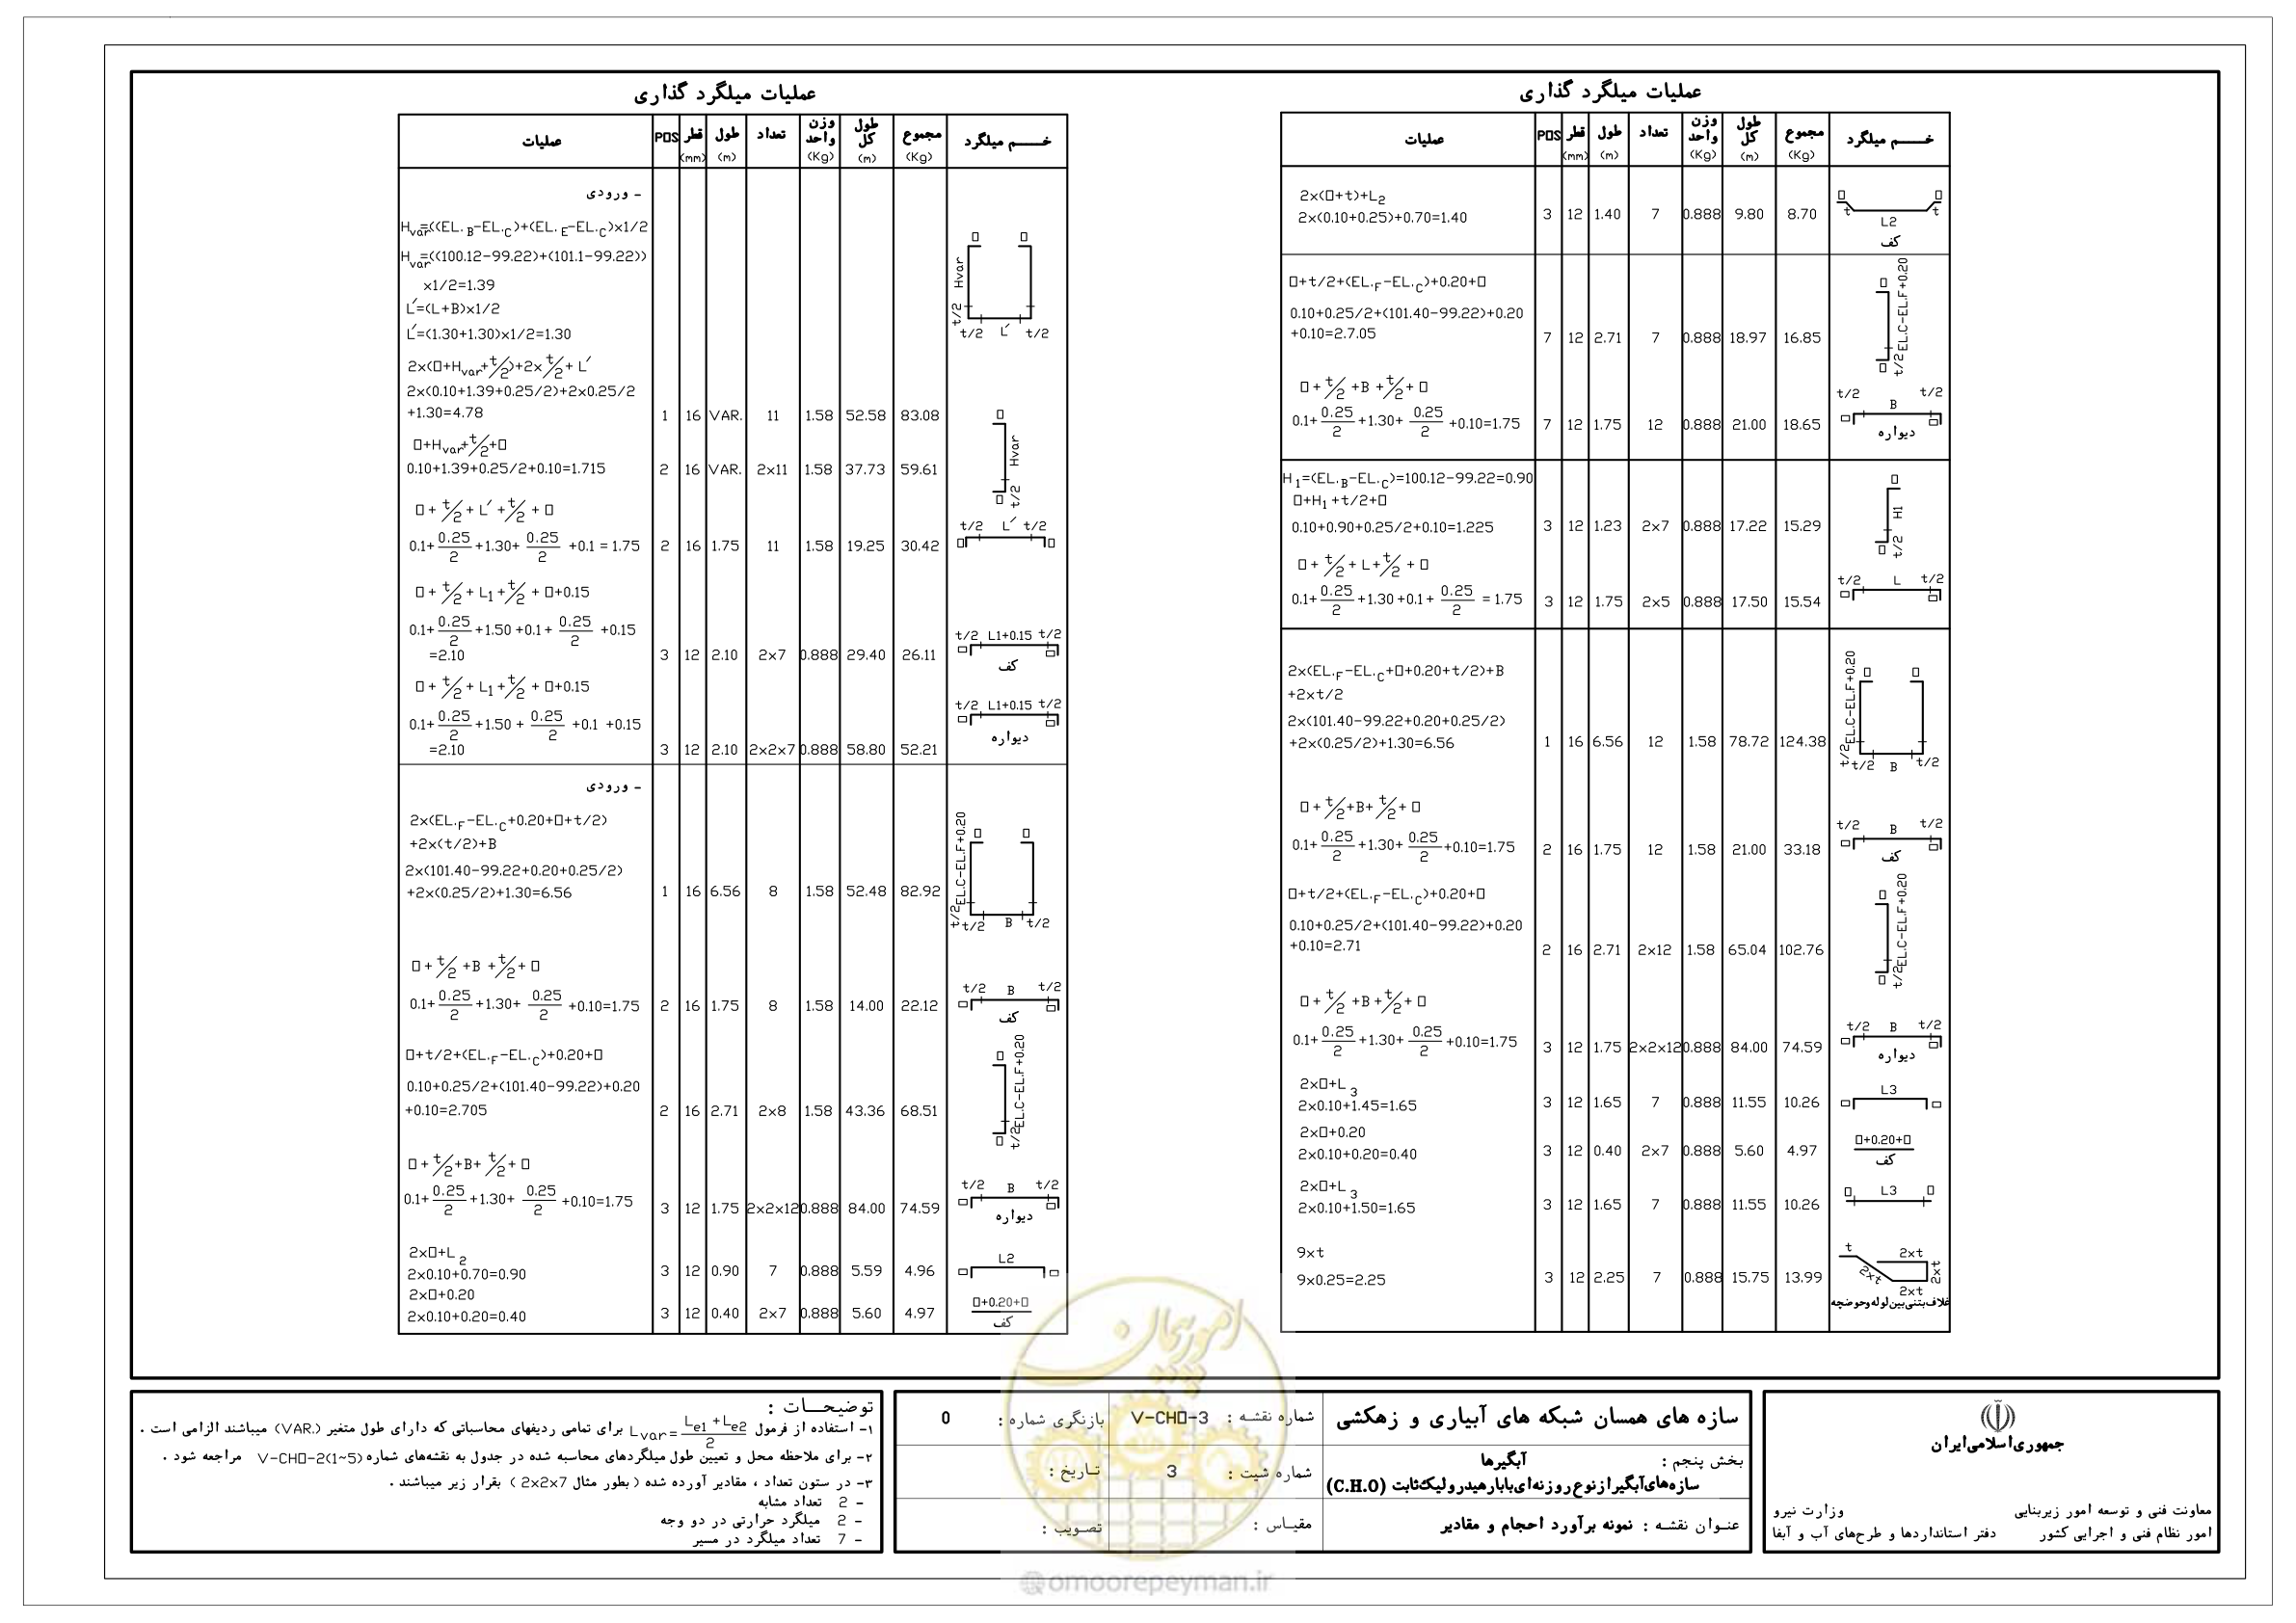 عملیات میلگرد گذاری
خـــم میلگرد
مجموع (Kg)
طول کل (m)
وزن واحد (Kg)
تعداد
طول (m)
قطر (mm)
POS
عملیات
2x(□+t)+L2
2x(0.10+0.25)+0.70=1.40 3 12 1.40 7 0.888 9.80 8.70
□ □ t L2 t
کف
□+t/2+(EL.F-EL.C)+0.20+□
0.10+0.25/2+(101.40-99.22)+0.20
+0.10=2.7.05 7 12 2.71 7 0.888 18.97 16.85
□ EL.C-EL.F+0.20 t/2 □
□ + t/2 +B + t/2 + □
0.1+ 0.25/2 +1.30+ 0.25/2 +0.10=1.75 7 12 1.75 12 0.888 21.00 18.65
t/2 B t/2
دیواره
H1=(EL.B-EL.C)=100.12-99.22=0.90
□+H1+t/2+□
0.10+0.90+0.25/2+0.10=1.225 3 12 1.23 2x7 0.888 17.22 15.29
□ H1 t/2 □
□ + t/2 + L + t/2 + □
0.1+ 0.25/2 +1.30 +0.1+ 0.25/2 = 1.75 3 12 1.75 2x5 0.888 17.50 15.54
t/2 L t/2
2x(EL.F-EL.C+□+0.20+t/2)+B
+2xt/2
2x(101.40-99.22+0.20+0.25/2)
+2x(0.25/2)+1.30=6.56 1 16 6.56 12 1.58 78.72 124.38
□ □ EL.C-EL.F+0.20 t/2 t/2 B t/2
□ + t/2 +B+ t/2 + □
0.1+ 0.25/2 +1.30+ 0.25/2 +0.10=1.75 2 16 1.75 12 1.58 21.00 33.18
t/2 B t/2
کف
□+t/2+(EL.F-EL.C)+0.20+□
0.10+0.25/2+(101.40-99.22)+0.20
+0.10=2.71 2 16 2.71 2x12 1.58 65.04 102.76
□ EL.C-EL.F+0.20 t/2 □
□ + t/2 +B + t/2 + □
0.1+ 0.25/2 +1.30+ 0.25/2 +0.10=1.75 3 12 1.75 2x2x12 0.888 84.00 74.59
t/2 B t/2
دیواره
2x□+L3
2x0.10+1.45=1.65 3 12 1.65 7 0.888 11.55 10.26
L3
2x□+0.20
2x0.10+0.20=0.40 3 12 0.40 2x7 0.888 5.60 4.97
□+0.20+□
کف
2x□+L3
2x0.10+1.50=1.65 3 12 1.65 7 0.888 11.55 10.26
□ L3 □
9xt
9x0.25=2.25 3 12 2.25 7 0.888 15.75 13.99
t 2xt 2xt 2xt 2xt
غلاف بتنی بین لوله و حوضچه
عملیات میلگرد گذاری
خـــم میلگرد
مجموع (Kg)
طول کل (m)
وزن واحد (Kg)
تعداد
طول (m)
قطر (mm)
POS
عملیات
- ورودی
Hvar=((EL.B-EL.C)+(EL.E-EL.C)x1/2
Hvar=((100.12-99.22)+(101.1-99.22))
x1/2=1.39
L′=(L+B)x1/2
L′=(1.30+1.30)x1/2=1.30
□ □ Hvar t/2 t/2 L′ t/2
2x(□+Hvar+t/2)+2x t/2 + L′
2x(0.10+1.39+0.25/2)+2x0.25/2
+1.30=4.78 1 16 VAR. 11 1.58 52.58 83.08
□+Hvar+t/2+□
0.10+1.39+0.25/2+0.10=1.715 2 16 VAR. 2x11 1.58 37.73 59.61
□ Hvar t/2 □
□ + t/2 + L′ + t/2 + □
0.1+ 0.25/2 +1.30+ 0.25/2 +0.1 = 1.75 2 16 1.75 11 1.58 19.25 30.42
t/2 L′ t/2
□ + t/2 + L1 + t/2 + □+0.15
0.1+ 0.25/2 +1.50 +0.1+ 0.25/2 +0.15
=2.10 3 12 2.10 2x7 0.888 29.40 26.11
t/2 L1+0.15 t/2
کف
□ + t/2 + L1 + t/2 + □+0.15
0.1+ 0.25/2 +1.50 + 0.25/2 +0.1 +0.15
=2.10 3 12 2.10 2x2x7 0.888 58.80 52.21
t/2 L1+0.15 t/2
دیواره
- ورودی
2x(EL.F-EL.C+0.20+□+t/2)
+2x(t/2)+B
2x(101.40-99.22+0.20+0.25/2)
+2x(0.25/2)+1.30=6.56 1 16 6.56 8 1.58 52.48 82.92
□ □ EL.C-EL.F+0.20 t/2 t/2 B t/2
□ + t/2 +B + t/2 + □
0.1+ 0.25/2 +1.30+ 0.25/2 +0.10=1.75 2 16 1.75 8 1.58 14.00 22.12
t/2 B t/2
کف
□+t/2+(EL.F-EL.C)+0.20+□
0.10+0.25/2+(101.40-99.22)+0.20
+0.10=2.705 2 16 2.71 2x8 1.58 43.36 68.51
□ EL.C-EL.F+0.20 t/2 □
□ + t/2 +B+ t/2 + □
0.1+ 0.25/2 +1.30+ 0.25/2 +0.10=1.75 3 12 1.75 2x2x12 0.888 84.00 74.59
t/2 B t/2
دیواره
2x□+L2
2x0.10+0.70=0.90 3 12 0.90 7 0.888 5.59 4.96
L2
2x□+0.20
2x0.10+0.20=0.40 3 12 0.40 2x7 0.888 5.60 4.97
□+0.20+□
کف
جمهوری اسلامی ایران
معاونت فنی و توسعه امور زیربنایی
امور نظام فنی و اجرایی کشور
وزارت نیرو
دفتر استانداردها و طرح‌های آب و آبفا
سازه های همسان شبکه های آبیاری و زهکشی
بخش پنجم : آبگیرها
سازه‌های آبگیر از نوع روزنه‌ای با بار هیدرولیک ثابت (C.H.O)
عنـوان نقشـه : نمونه برآورد احجام و مقادیر
شماره نقشـه : V-CHO-3
شماره شیت : 3
مقیـاس :
بازنگری شماره : 0
تـاریخ :
تصـویب :
توضیحـــات :
۱- استفاده از فرمول Lvar= Le1 +Le2 / 2 برای تمامی ردیفهای محاسباتی که دارای طول متغیر (VAR.) میباشند الزامی است .
۲- برای ملاحظه محل و تعیین طول میلگردهای محاسبه شده در جدول به نقشه‌های شماره V-CHO-2(1~5) مراجعه شود .
۳- در ستون تعداد ، مقادیر آورده شده ( بطور مثال 2x2x7 ) بقرار زیر میباشند .
- 2 تعداد مشابه
- 2 میلگرد حرارتی در دو وجه
- 7 تعداد میلگرد در مسیر
امور پیمان
@omoorepeyman.ir